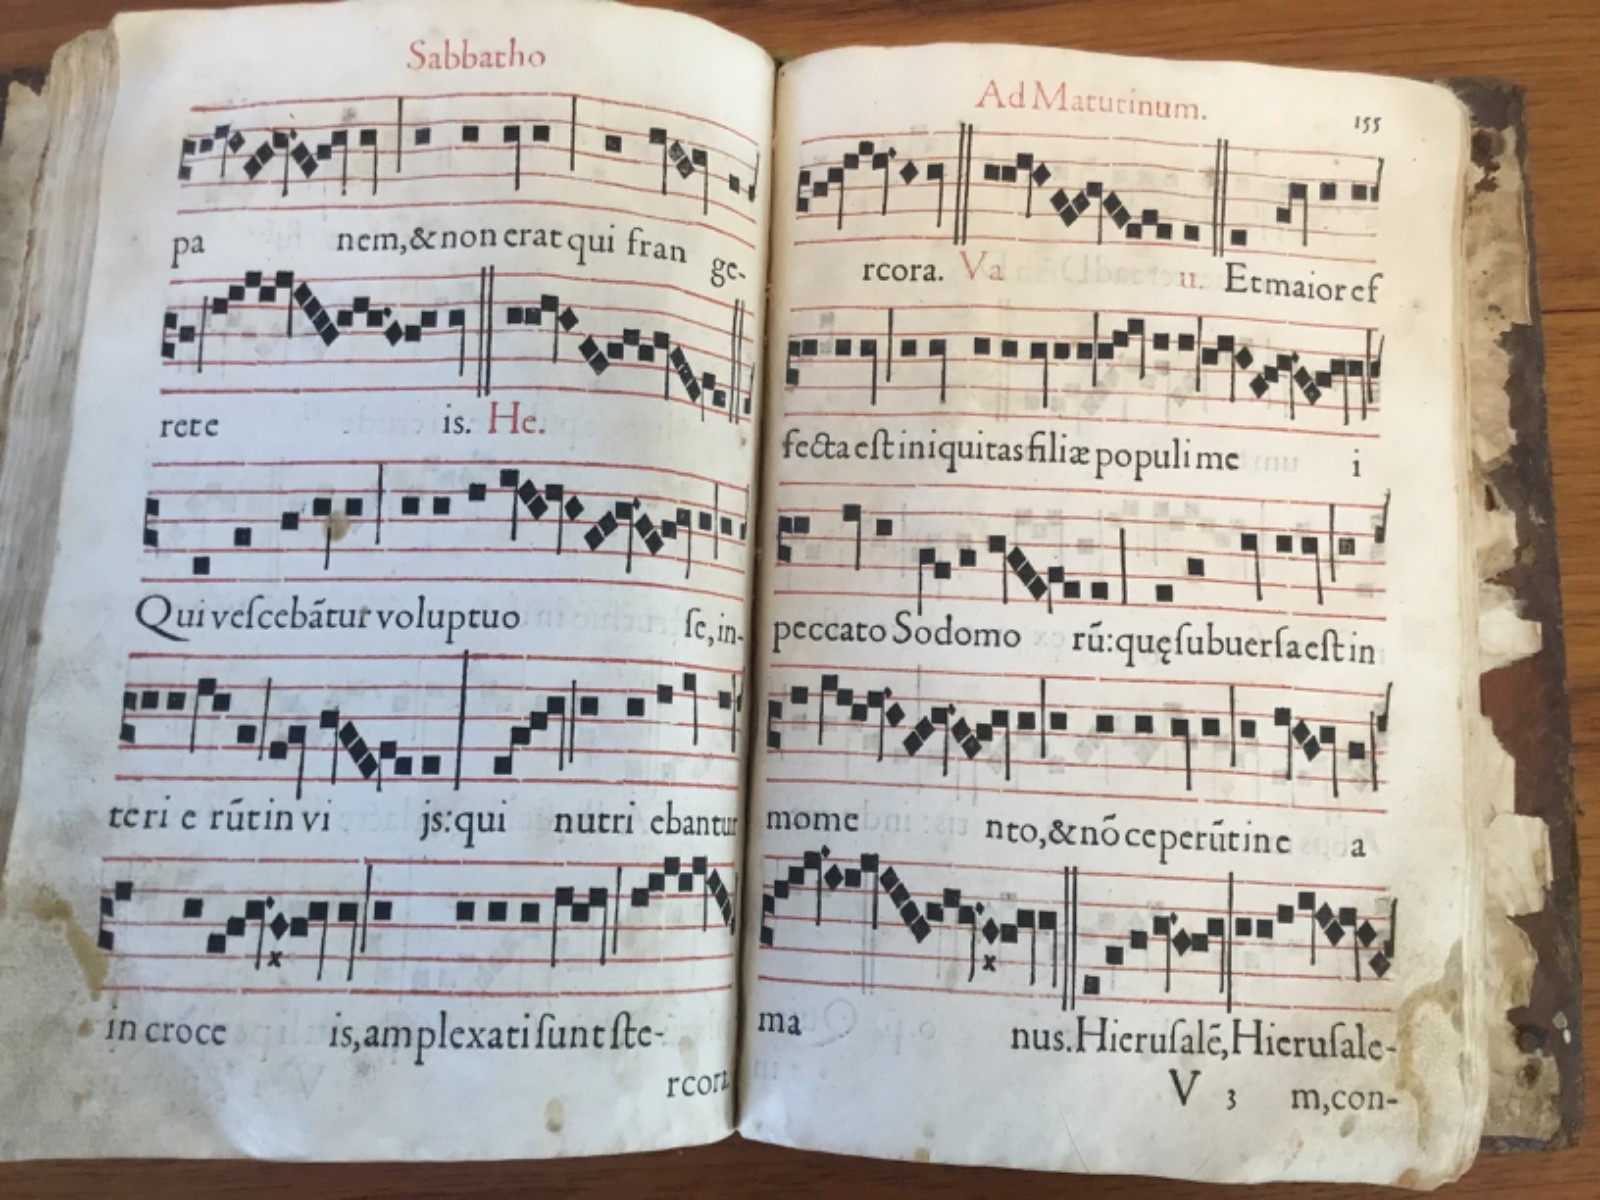 Sabbatho
pa nem,&non erat qui fran ge-
rete is. He.
Qui veſcebãtur voluptuo ſe,in-
teri e rũt in vi js:qui nutri ebantur
in croce is,amplexati ſunt ſte-
rcora
Ad Matutinum.
155
rcora. Va u. Et maior ef
fecta eſt iniquitas filiæ populi me i
peccato Sodomo rũ:quę ſubuerſa eſt in
mome nto,& nõ ceperũt in e a
ma nus. Hieruſalẽ, Hieruſale-
V 3 m,con-